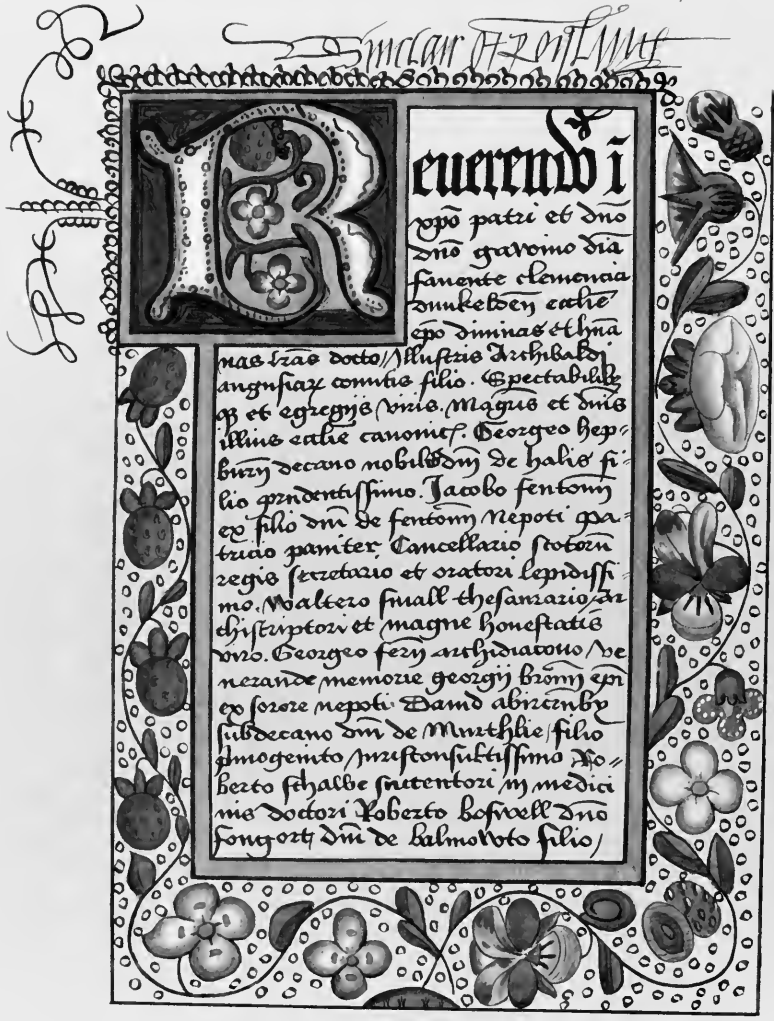 Sinclair of Roislyne
Reuerendo i
xpo patri et dno
dno gavvino dia
fauente clemencia
dunkelden ecclie
epo diuinas et huma
nas lras docto / Illustris Archibaldi
angusiae comitis filio. Spectabilib
q3 et egregijs viris. Magris et dnis
illius ecclie canonic. Georgeo hep-
burn decano nobilis dni de halis fi-
lio prudentissimo. Jacobo fentoun
ex filio dni de fentoun Nepoti pa-
tricio paniter, Cancellario scotoru
regis secretario et oratori lepidissi-
mo. Waltero small thesaurario / ar
chiscriptori et magne honestatis
viro. Georgeo fern archidiacono / ve
nerande memorie georgij broun epi
ex sorore nepoti. Dauid abircrnby
subdecano dni de Murthlie / filio
primogenito / Jurisconsultissimo Ro-
berto schalbe succentori in medici
nis doctori Roberto Boswell dno
fongort dni de balmowto filio /